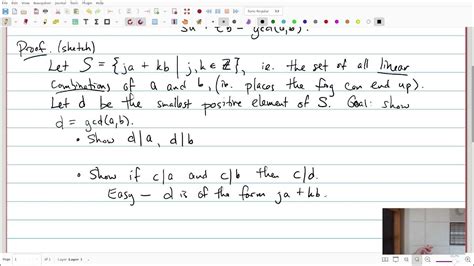 sa + tb = gcd(a,b).
Proof. (sketch)
Let S = {ja + kb | j,k ∈ ℤ}, ie. the set of all linear
combinations of a and b, (ie. places the frog can end up).
Let d be the smallest positive element of S. Goal: show
d = gcd(a,b).
• Show d|a, d|b
• Show if c|a and c|b then c|d.
Easy — d is of the form ja + kb.